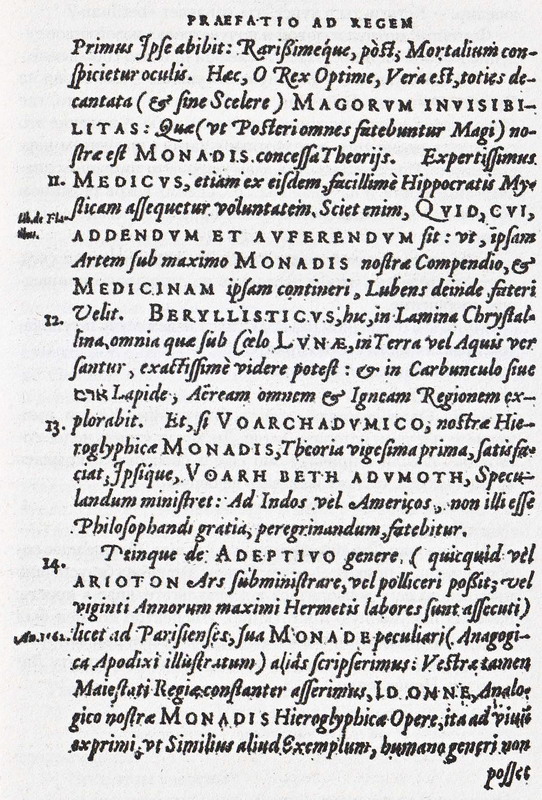 PRAEFATIO AD REGEM
Primus Ipse abibit: Rarißimeque, pòst, Mortalium con-
spicietur oculis. Hæc, O Rex Optime, Vera est, toties de-
cantata (& sine Scelere) MAGORVM INVISIBI-
LITAS: Quæ (vt Posteri omnes fatebuntur Magi) no-
stræ est MONADIS concessa Theorijs. Expertissimus
11. MEDICVS, etiam ex eisdem, facillimè Hippocratis My-
sticam assequetur voluntatem. Sciet enim, QVID, CVI,
Lib. de Fla-
tibus.
ADDENDVM ET AVFERENDVM sit: vt, ipsam
Artem sub maximo MONADIS nostræ Compendio, &
MEDICINAM ipsam contineri, Lubens deinde fateri
12. Velit. BERYLLISTICVS, hic, in Lamina Chrystal-
lina, omnia quæ sub Cœlo LVNÆ, in Terra vel Aquis ver
santur, exactissimè videre potest: & in Carbunculo siue
Lapide, Aëream omnem & Igneam Regionem ex-
13. plorabit. Et, si VOARCHADVMICO, nostræ Hie-
roglyphicæ MONADIS, Theoria vigesima prima, satisfa-
ciat, Ipsique, VOARH BETH ADVMOTH, Specu-
landum ministret: Ad Indos vel Americos, non illi esse
Philosophandi gratia, peregrinandum, fatebitur.
14. Deinque de ADEPTIVO genere, (quicquid vel
ARIOTON Ars subministrare, vel polliceri poßit; vel
viginti Annorum maximi Hermetis labores sunt assecuti)
An. 1562. licet ad Parisienses, sua MONADE peculiari (Anagogi-
ca Apodixi illustratum) aliàs scripserimus: Vestræ tamen
Maiestati Regiæ constanter asserimus, ID OMNE, Analo-
gico nostræ MONADIS Hieroglyphicæ Opere, ita ad viuũ
exprimi, vt Similius aliud Exemplum, humano generi non
posset